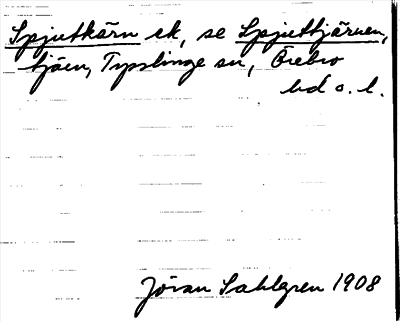 Spjutkärn ek, se Spjuttjärnen,
tjärn, Tysslinge sn, Örebro
hd o. l.
Jöran Sahlgren 1908